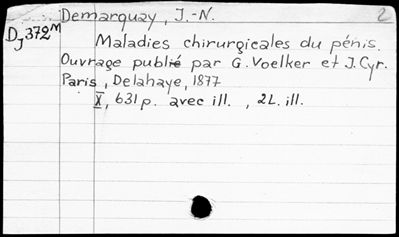 Demarquay, J.-N. 2
DJ 372M
Maladies chirurgicales du pénis.
Ouvrage publié par G. Voelker et J. Cyr.
Paris, Delahaye, 1877
X, 631 p. avec ill., 2 L. ill.